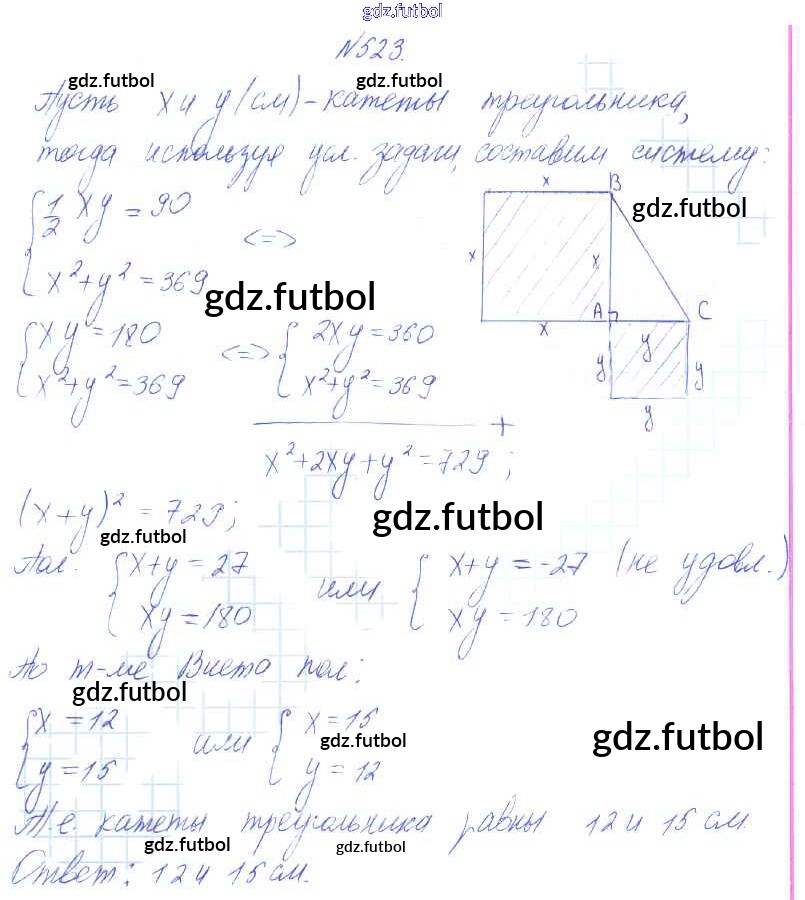 gdz.futbol
№523.
gdz.futbol gdz.futbol
Пусть x и y (см) - катеты треугольника,
тогда используя усл. задачи, составим систему:
{ 1/2 xy = 90
x² + y² = 369 <=>
gdz.futbol
gdz.futbol
{ xy = 180
x² + y² = 369 <=> { 2xy = 360
x² + y² = 369
+
x² + 2xy + y² = 729;
x B
x x
A C
x y
y y
y
(x + y)² = 729;
gdz.futbol
gdz.futbol
Пол. { x + y = 27
xy = 180 или { x + y = -27 (не удовл.)
xy = 180
По т-ме Виета пол:
gdz.futbol
{ x = 12
y = 15 или { x = 15
y = 12
gdz.futbol gdz.futbol
Т.е. катеты треугольника равны 12 и 15 см.
gdz.futbol gdz.futbol
Ответ: 12 и 15 см.